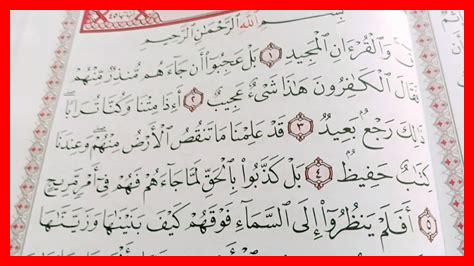 بِسْمِ اللَّهِ الرَّحْمَٰنِ الرَّحِيمِ
وَالْقُرْءَانِ الْمَجِيدِ ١ بَلْ عَجِبُوٓا۟ أَن جَآءَهُم مُّنذِرٌ مِّنْهُمْ
فَقَالَ الْكَٰفِرُونَ هَٰذَا شَىْءٌ عَجِيبٌ ٢ أَءِذَا مِتْنَا وَكُنَّا تُرَابًا
ذَٰلِكَ رَجْعٌۢ بَعِيدٌ ٣ قَدْ عَلِمْنَا مَا تَنقُصُ الْأَرْضُ مِنْهُمْ وَعِندَنَا
كِتَٰبٌ حَفِيظٌۢ ٤ بَلْ كَذَّبُوا۟ بِالْحَقِّ لَمَّا جَآءَهُمْ فَهُمْ فِىٓ أَمْرٍ مَّرِيجٍ
٥ أَفَلَمْ يَنظُرُوٓا۟ إِلَى السَّمَآءِ فَوْقَهُمْ كَيْفَ بَنَيْنَٰهَا وَزَيَّنَّٰهَا